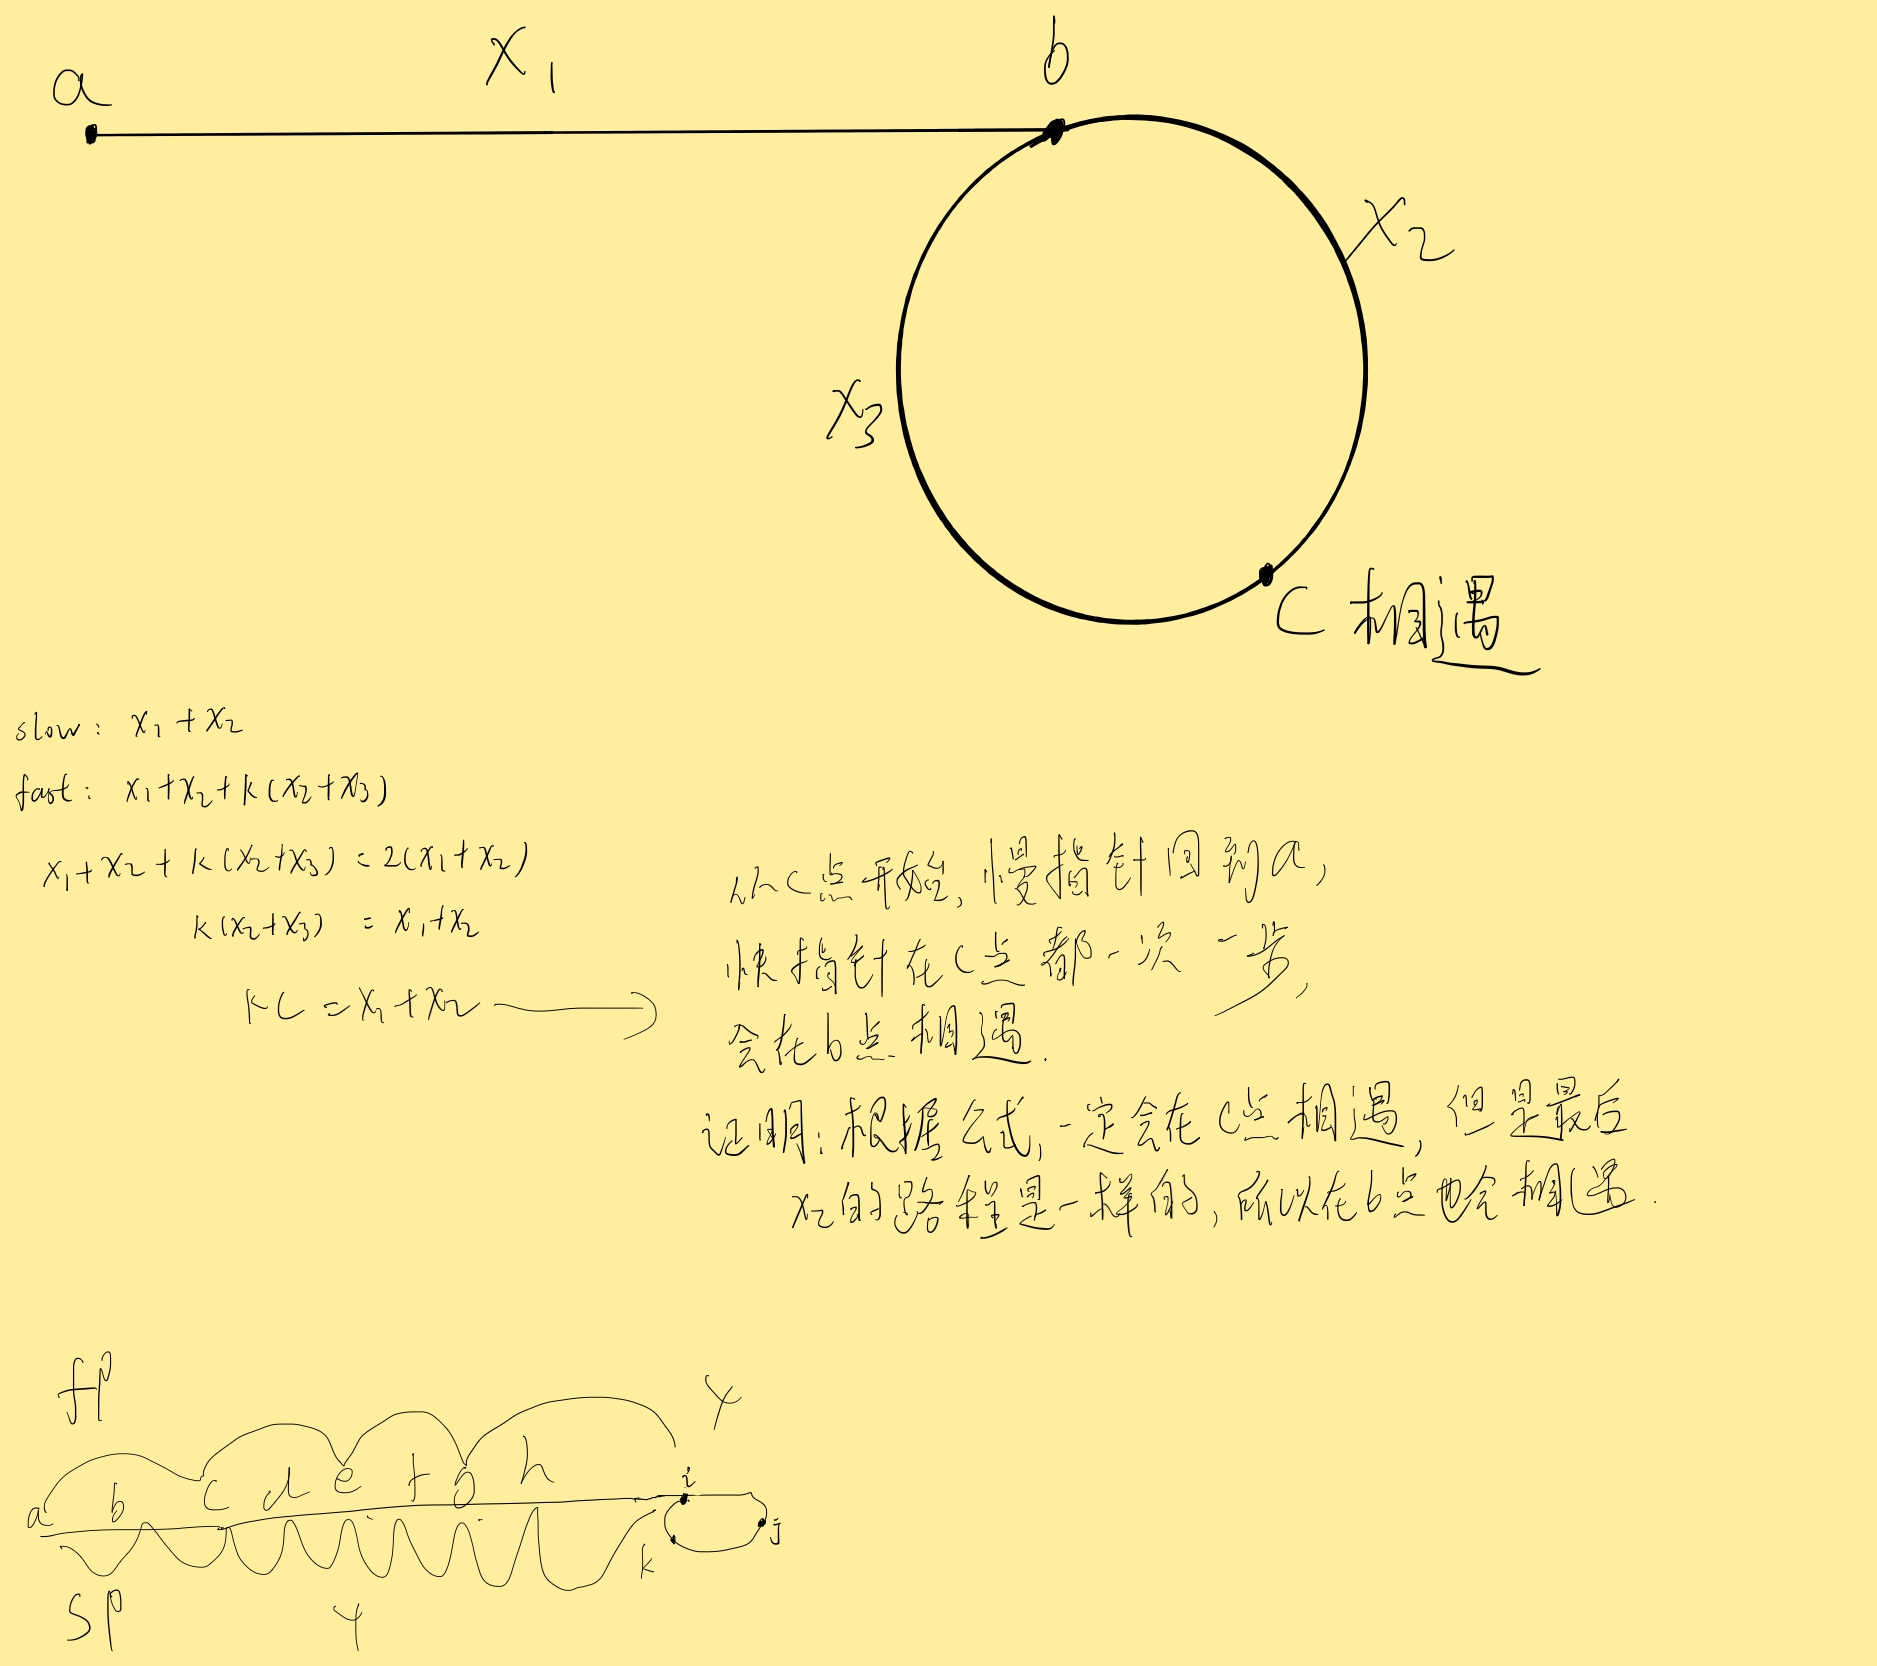 a
x₁
b
x₂
x₃
C 相遇
slow: x₁+x₂
fast: x₁+x₂+k(x₂+x₃)
x₁+x₂+k(x₂+x₃)=2(x₁+x₂)
k(x₂+x₃) = x₁+x₂
kC=x₁+x₂
从C点开始,慢指针回到a,
快指针在C点都一次一步,
会在b点相遇.
证明:根据公式,一定会在C点相遇,但是最后
x₂的路程是一样的,所以在b点也会相遇.
fp
Y
a b c d e f g h i
j
k
SP
Y